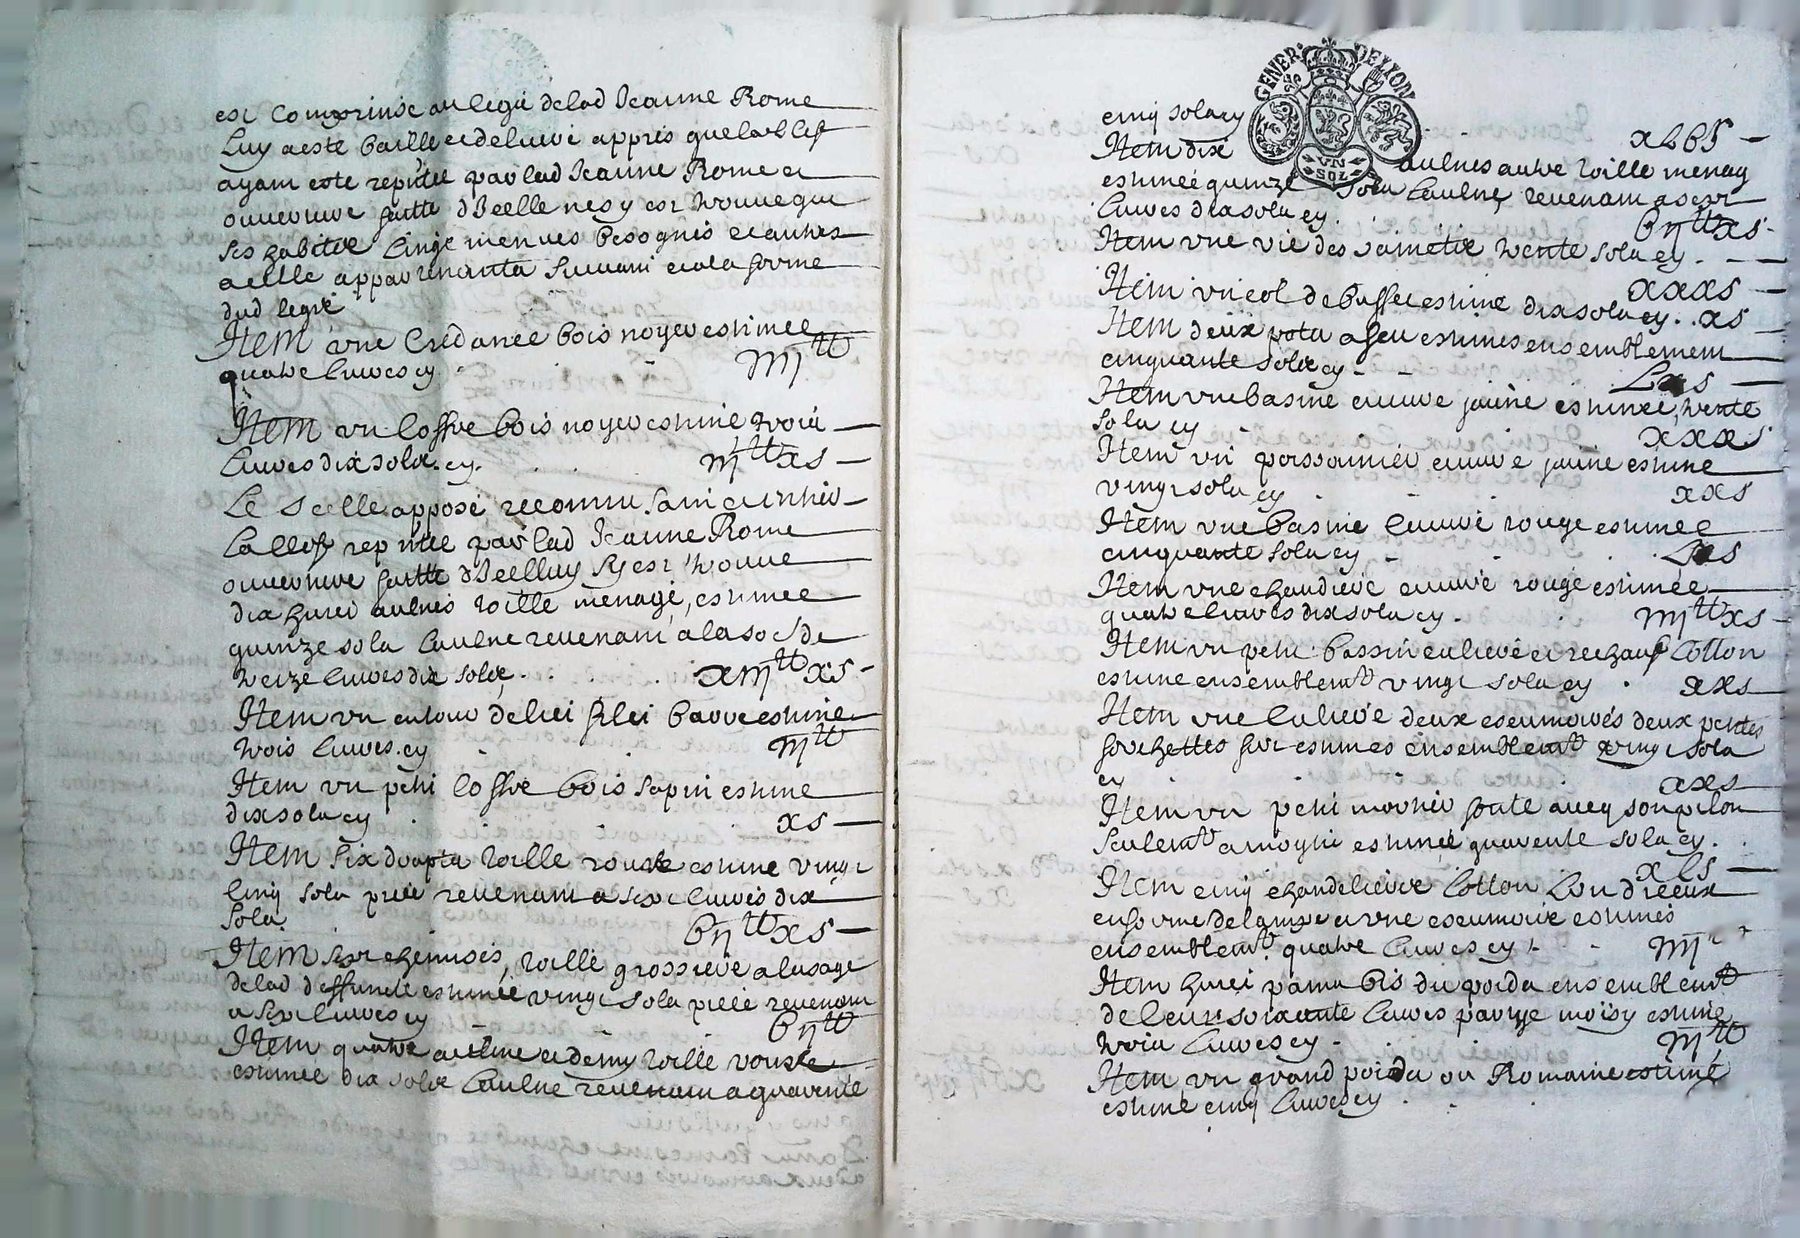 est comprinse au legié delad Jeanne Rome
Luy a esté baillé et delivré appres que la clef
ayant esté repntée par lad Jeanne Rome et
ouverture faitte d'Icelle nes y est trouvé que
ses habitz linge menues besognes et autres
a elle appartenants suivant et a la forme
dud legié
Item une credance bois noyer estimée
quatre livres cy iiij tt
Item un coffre bois noyer estimé trois
livres dix solz cy iij tt x s
Le scellé apposé reconnu sain et entier
la clef repntée par lad Jeanne Rome
ouverture faitte d'Icelluy s'y est trouvé
dix huict aulnes toille menage, estimée
quinze solz l'aulne revenant, a la so de
treize livres dix solz xiij tt x s
Item un entour de lict barre estimé
trois livres cy iij tt
Item un petit coffre bois sapin estimé
dix solz cy x s
Item six draptz toille rousse estimé vingt
cinq solz piece revenant a sept livres dix
solz vij tt x s
Item sept chemises, toille grossiere a l'usage
delad deffunte estimée vingt solz piece revenant
a sept livres cy vij tt
Item quatre aulnes et demy toille rousse
estimée dix solz l'aulne revenant a quarente
cinq solz cy
GENER. DE LYON
VN SOL
xLv s
Item dix aulnes autre toille menag
estimée quinze solz l'aulne, revenant a sept
livres dix solz cy. vij tt x s
Item une trente solz cy
xxx s
Item un de buffet estimé dix solz cy. x s
Item deux potz a feu estimés ensemblement
cinquante solz cy L s
Item une basine cuivre jaune estimée, trente
solz cy xxx s
Item un poissonnier cuivre jaune estimé
vingt solz cy xx s
Item une basine cuivre rouge estimée
cinquante solz cy L s
Item une chaudiere cuivre rouge estimée
quatre livres dix solz cy. iiij tt x s
Item un petit bassin culiere et rechauf lotton
estimé ensemblemt vingt solz cy xx s
Item une culiere deux escumoires deux petites
fourchettes fer estimés ensemblemt vingt solz
cy xx s
Item un petit mortier fonte avecq son pilon
seulemt a moytié estimée quarente solz cy.
xL s
Item cinq chandeliers lotton l'un d'iceux
en forme de lampe et une escumoire estimés
ensemblemt quatre livres cy iiij
Item huict pains bis du poidz ensemblemt
de leur soixante livres partye moisy estimé
trois livres cy iij tt
Item un grand poidz ou Romaine estimé
estimé cinq livres cy